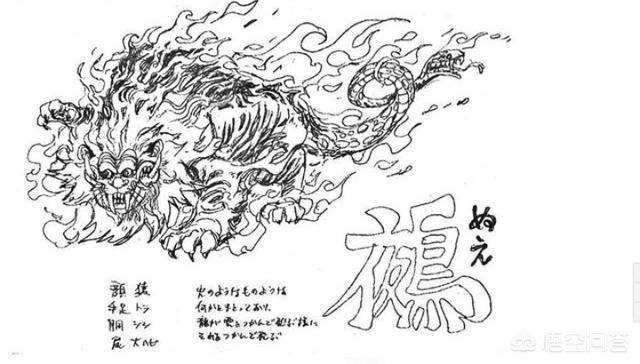 鵺
ぬえ
頭 猿
手足 トラ
胴 シシ
尾 大ヘビ
火のようなものような
何かをまとっており、
龍が雲をつかんで飛ぶ様に
それをつかんで飛ぶ
悟空问答